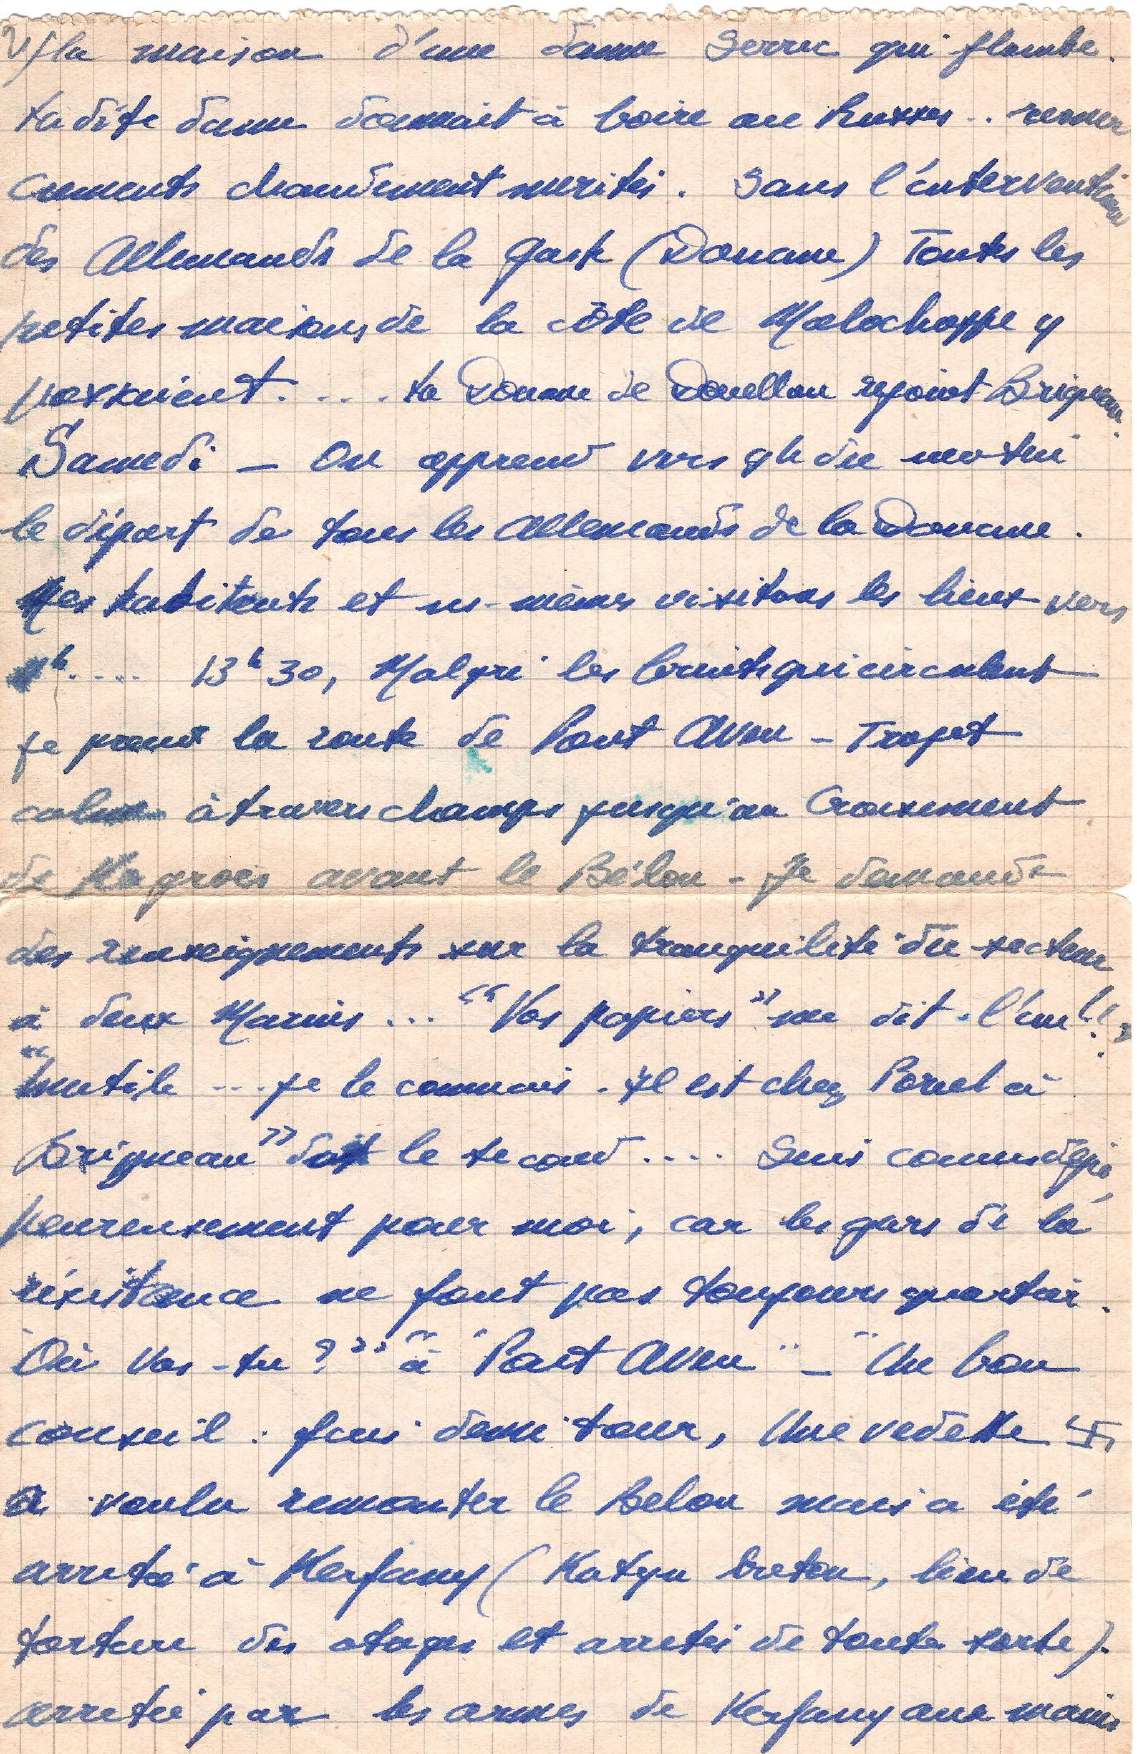 2/ la maison d'une dame Serre qui flambe.
La dite dame donnait à boire au Russes.. remer
ciements chaudement mérités. Sans l'intervention
des Allemands de la Gast (Douane) Toutes les
petites maisons de la côte de Malachappe y
passaient..... La Douane de Doëllan rejoint Brigneau.
Samedi – On apprend vers 9h du matin
le départ de tous les Allemands de la Douane.
Les habitants et ns-mêmes visitons les lieux vers
..... 13h30, Malgré les bruits qui circulent
je prend la route de Pont Aven – Trajet
calme à travers champs jusqu'au Croisement
de avant le Bélon – Je demande
des renseignements sur la tranquilité du secteur
à deux Marins... "Vos papiers" me dit l'un!!
"Inutile ... je le connais. Il est chez à
Brigneau" dit le second.... Suis connu
heureusement pour moi, car les gars de la
résistance ne font pas toujours quartier.
"Où Vas-tu?" "à Pont Aven" – "Un bon
conseil : fais demi tour, Une vedette 卐
a voulu remonter le Belon mais a été
arretée à Kerfany (Katyn breton, lieu de
torture des otages et arretés de toutes sorte).
arretée par les armes de Kerfany aux mains